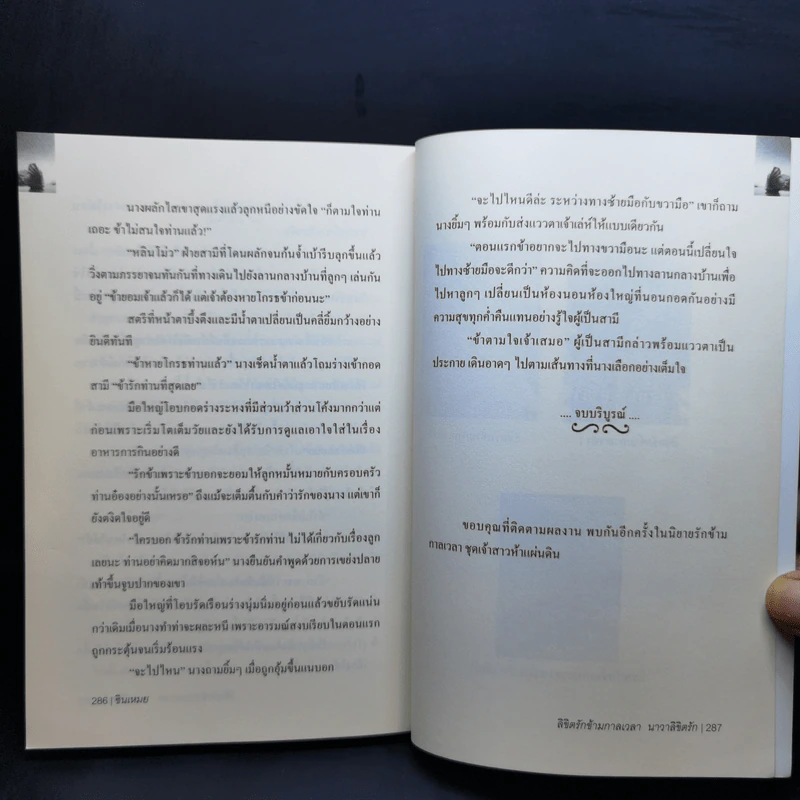 นางผลักไสเขาสุดแรงแล้วลุกหนีอย่างขัดใจ “ก็ตามใจท่าน
เถอะ ข้าไม่สนใจท่านแล้ว!”
“หลินโม่ว” ฝ่ายสามีที่โดนผลักจนก้นจ้ำเบ้ารีบลุกขึ้นแล้ว
วิ่งตามภรรยาจนทันกันที่ทางเดินไปยังลานกลางบ้านที่ลูกๆ เล่นกัน
อยู่ “ข้ายอมเจ้าแล้วก็ได้ แต่เจ้าต้องหายโกรธข้าก่อนนะ”
สตรีที่หน้าตาบึ้งตึงและมีน้ำตาเปลี่ยนเป็นคลี่ยิ้มกว้างอย่าง
ยินดีทันที
“ข้าหายโกรธท่านแล้ว” นางเช็ดน้ำตาแล้วโถมร่างเข้ากอด
สามี “ข้ารักท่านที่สุดเลย”
มือใหญ่โอบกอดร่างระหงที่มีส่วนเว้าส่วนโค้งมากกว่าแต่
ก่อนเพราะเริ่มโตเต็มวัยและยังได้รับการดูแลเอาใจใส่ในเรื่อง
อาหารการกินอย่างดี
“รักข้าเพราะข้าบอกจะยอมให้ลูกหมั้นหมายกับครอบครัว
ท่านอ๋องอย่างนั้นเหรอ” ถึงแม้จะเต็มตื้นกับคำว่ารักของนาง แต่เขาก็
ยังตงิดใจอยู่ดี
“ใครบอก ข้ารักท่านเพราะข้ารักท่าน ไม่ได้เกี่ยวกับเรื่องลูก
เลยนะ ท่านอย่าคิดมากสิจอห์น” นางยืนยันคำพูดด้วยการเขย่งปลาย
เท้าขึ้นจูบปากของเขา
มือใหญ่ที่โอบรัดเรือนร่างนุ่มนิ่มอยู่ก่อนแล้วขยับรัดแน่น
กว่าเดิมเมื่อนางทำท่าจะผละหนี เพราะอารมณ์สงบเรียบในตอนแรก
ถูกกระตุ้นจนเริ่มร้อนแรง
“จะไปไหน” นางถามยิ้มๆ เมื่อถูกอุ้มขึ้นแนบอก
286 | ซินเหมย
“จะไปไหนดีล่ะ ระหว่างทางซ้ายมือกับขวามือ” เขาก็ถาม
นางยิ้มๆ พร้อมกับส่งแววตาเจ้าเล่ห์ให้แบบเดียวกัน
“ตอนแรกข้าอยากจะไปทางขวามือนะ แต่ตอนนี้เปลี่ยนใจ
ไปทางซ้ายมือจะดีกว่า” ความคิดที่จะออกไปทางลานกลางบ้านเพื่อ
ไปหาลูกๆ เปลี่ยนเป็นห้องนอนห้องใหญ่ที่นอนกอดกันอย่างมี
ความสุขทุกค่ำคืนแทนอย่างรู้ใจผู้เป็นสามี
“ข้าตามใจเจ้าเสมอ” ผู้เป็นสามีกล่าวพร้อมแววตาเป็น
ประกาย เดินอาดๆ ไปตามเส้นทางที่นางเลือกอย่างเต็มใจ
.... จบบริบูรณ์ ....
ขอบคุณที่ติดตามผลงาน พบกันอีกครั้งในนิยายรักข้าม
กาลเวลา ชุดเจ้าสาวห้าแผ่นดิน
ลิขิตรักข้ามกาลเวลา นาวาลิขิตรัก | 287